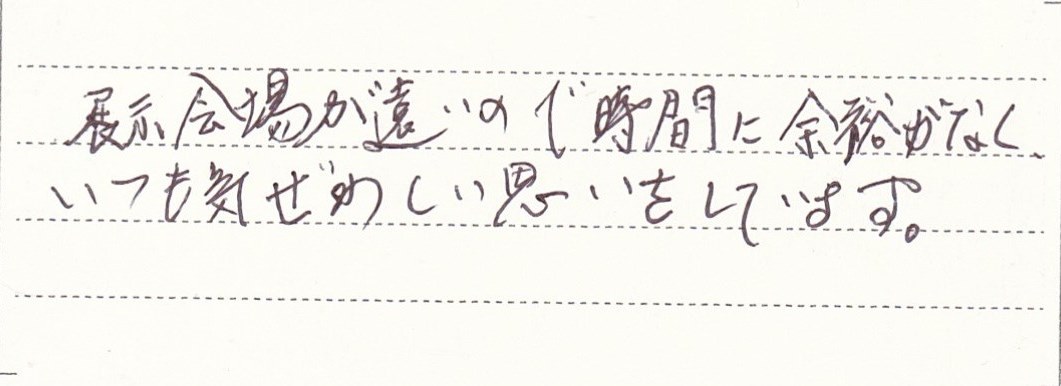 展示会場が遠いので時間に余裕がなく、
いつも気ぜわしい思いをしています。